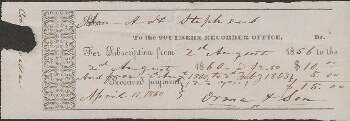 Hon A. H Stephens
To the Southern Recorder Office, Dr.
For Subscription from 2nd August 1856 to the
2nd August 1860 - @ 2.50 $10 00
And from 2 Aug 1860 to 2nd Feby 1863 5.00
Received payment, $15.00
April 18, 1860 Orme & Son